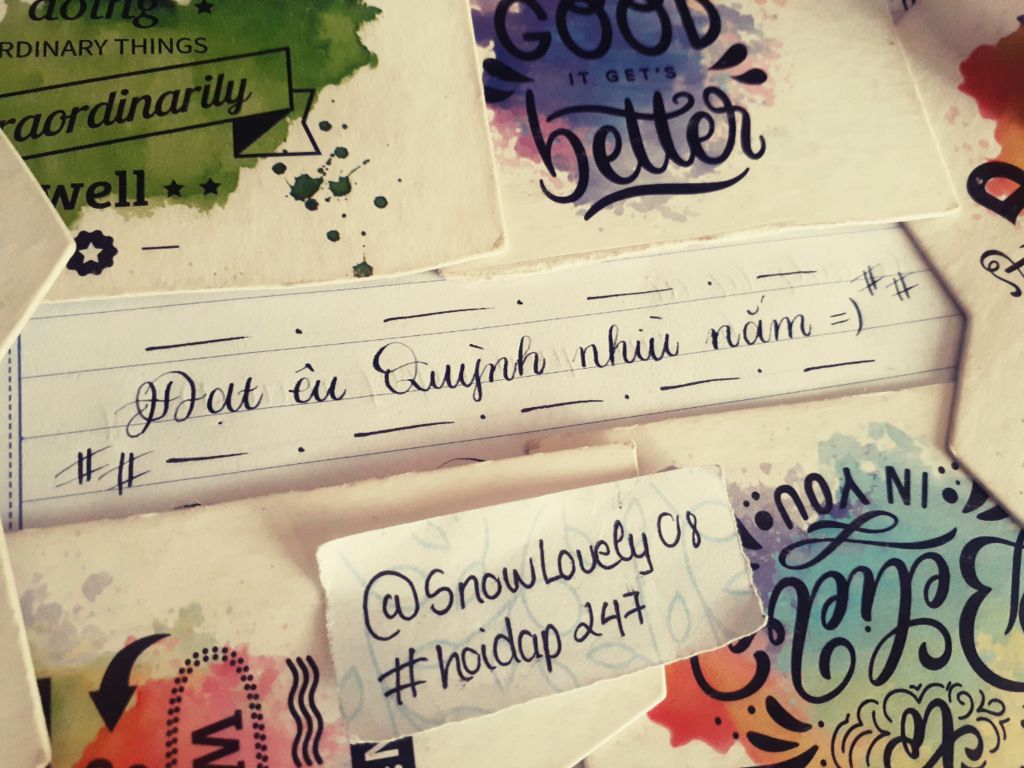 doing
RDINARY THINGS
raordinarily
well
GOOD
IT GET'S
better
Đạt êu Quỳnh nhiù năm =)
##
##
@SnowLovely08
#hoidap247
IN YOU
Belie
W